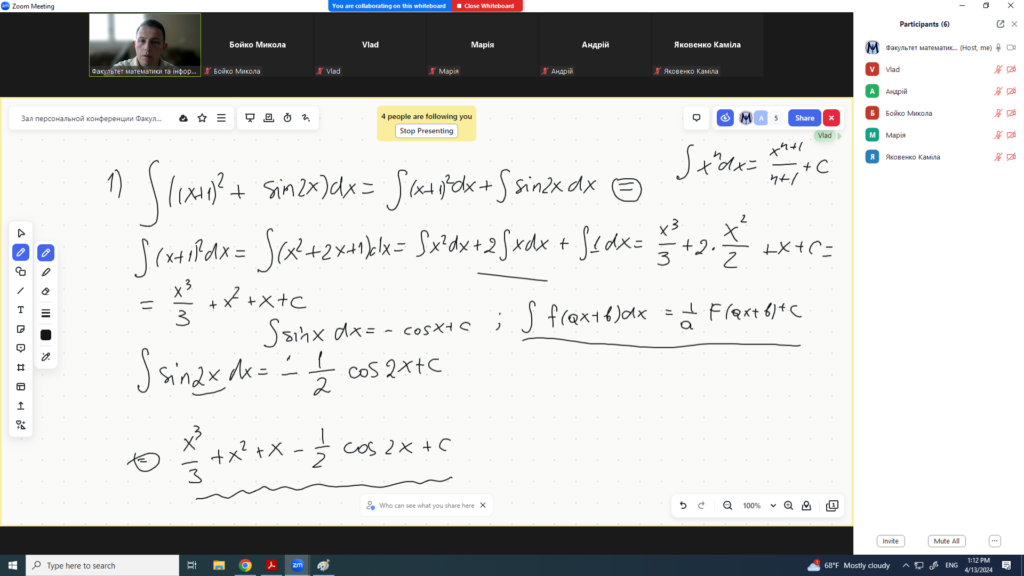 Zoom Meeting
You are collaborating on this whiteboard
Close Whiteboard
Факультет математики та інфор...
Бойко Микола
Бойко Микола
Vlad
Vlad
Марія
Марія
Андрій
Андрій
Яковенко Каміла
Яковенко Каміла
Participants (6)
Факультет математик... (Host, me)
V Vlad
А Андрій
Б Бойко Микола
М Марія
Я Яковенко Каміла
Зал персональной конференции Факул...
4 people are following you
Stop Presenting
A 5 Share
Vlad
1) ∫((x+1)² + sin2x)dx = ∫(x+1)²dx + ∫sin2x dx ⊜
∫xⁿdx = xⁿ⁺¹/n+1 + C
∫(x+1)²dx = ∫(x²+2x+1)dx = ∫x²dx + 2∫xdx + ∫1dx = x³/3 + 2·x²/2 + x + C =
= x³/3 + x² + x + C
∫sinx dx = - cosx + C ; ∫f(ax+b)dx = 1/a F(ax+b) + C
∫sin2x dx = - 1/2 cos2x + C
⊜ x³/3 + x² + x - 1/2 cos2x + C
Who can see what you share here
100%
Invite
Mute All
Type here to search
zm
68°F Mostly cloudy
ENG
1:12 PM
4/13/2024